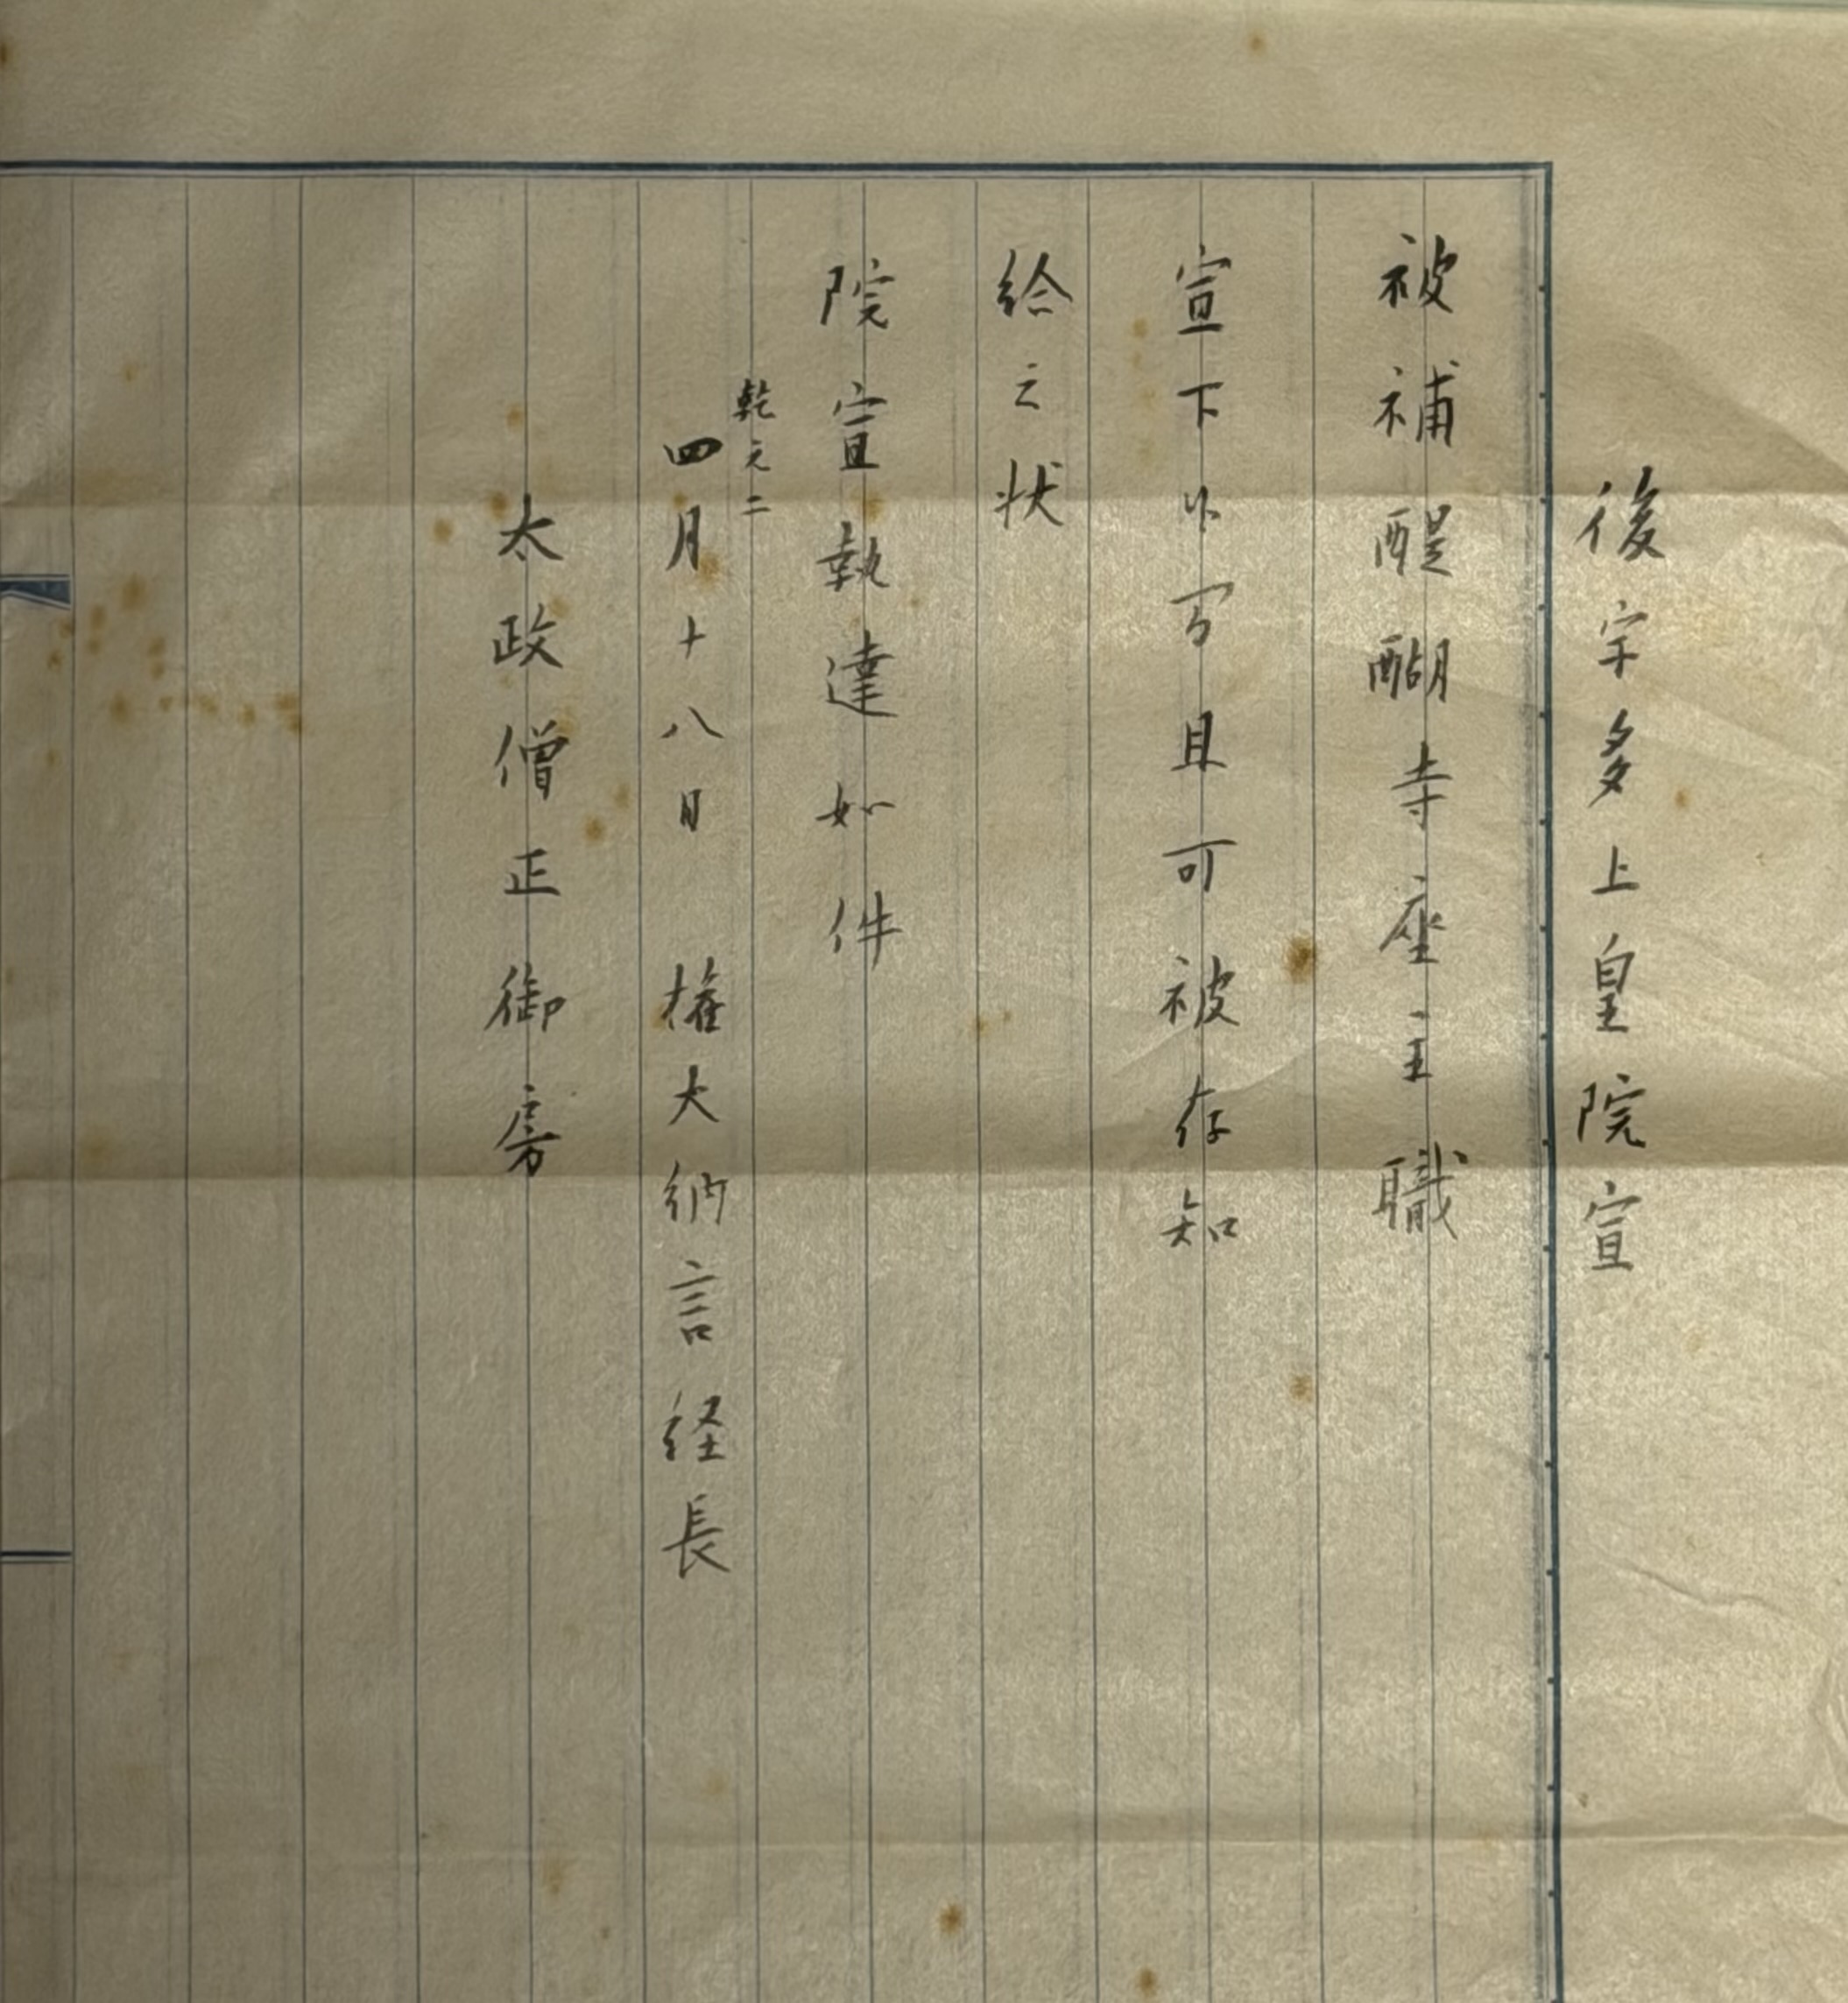 後宇多上皇院宣
被補醍醐寺座主職
宣下以前且可被存知
給之状
院宣執達如件
乾元二
四月十八日 権大納言経長
太政僧正御房